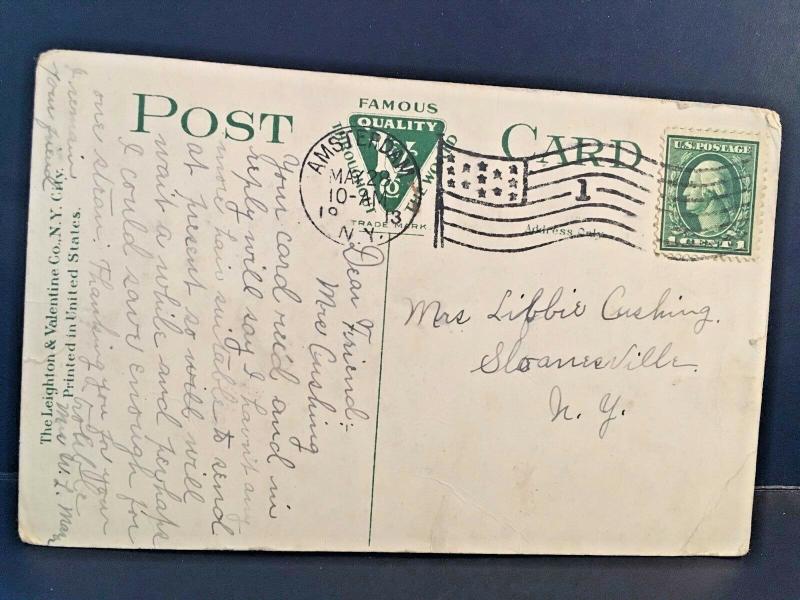 POST CARD
FAMOUS
QUALITY
THROUGHOUT THE WORLD
TRADE MARK
AMSTERDAM
MAY 28
10-AM
19 13
N.Y.
1
Address Only
U.S. POSTAGE
1 CENT 1
Mrs Libbie Cushing.
Sloanesville.
N. Y.
Dear Friend:-
Mrs Cushing
Your card rec'd and in
reply will say I havn't any
more hair suitable to send
at present so will will
wait a while and perhaps
I could save enough for
one stran. Thanking you for your
trouble
I remain
Your friend
Mrs W. L.
The Leighton & Valentine Co., N.Y. City.
Printed in United States.